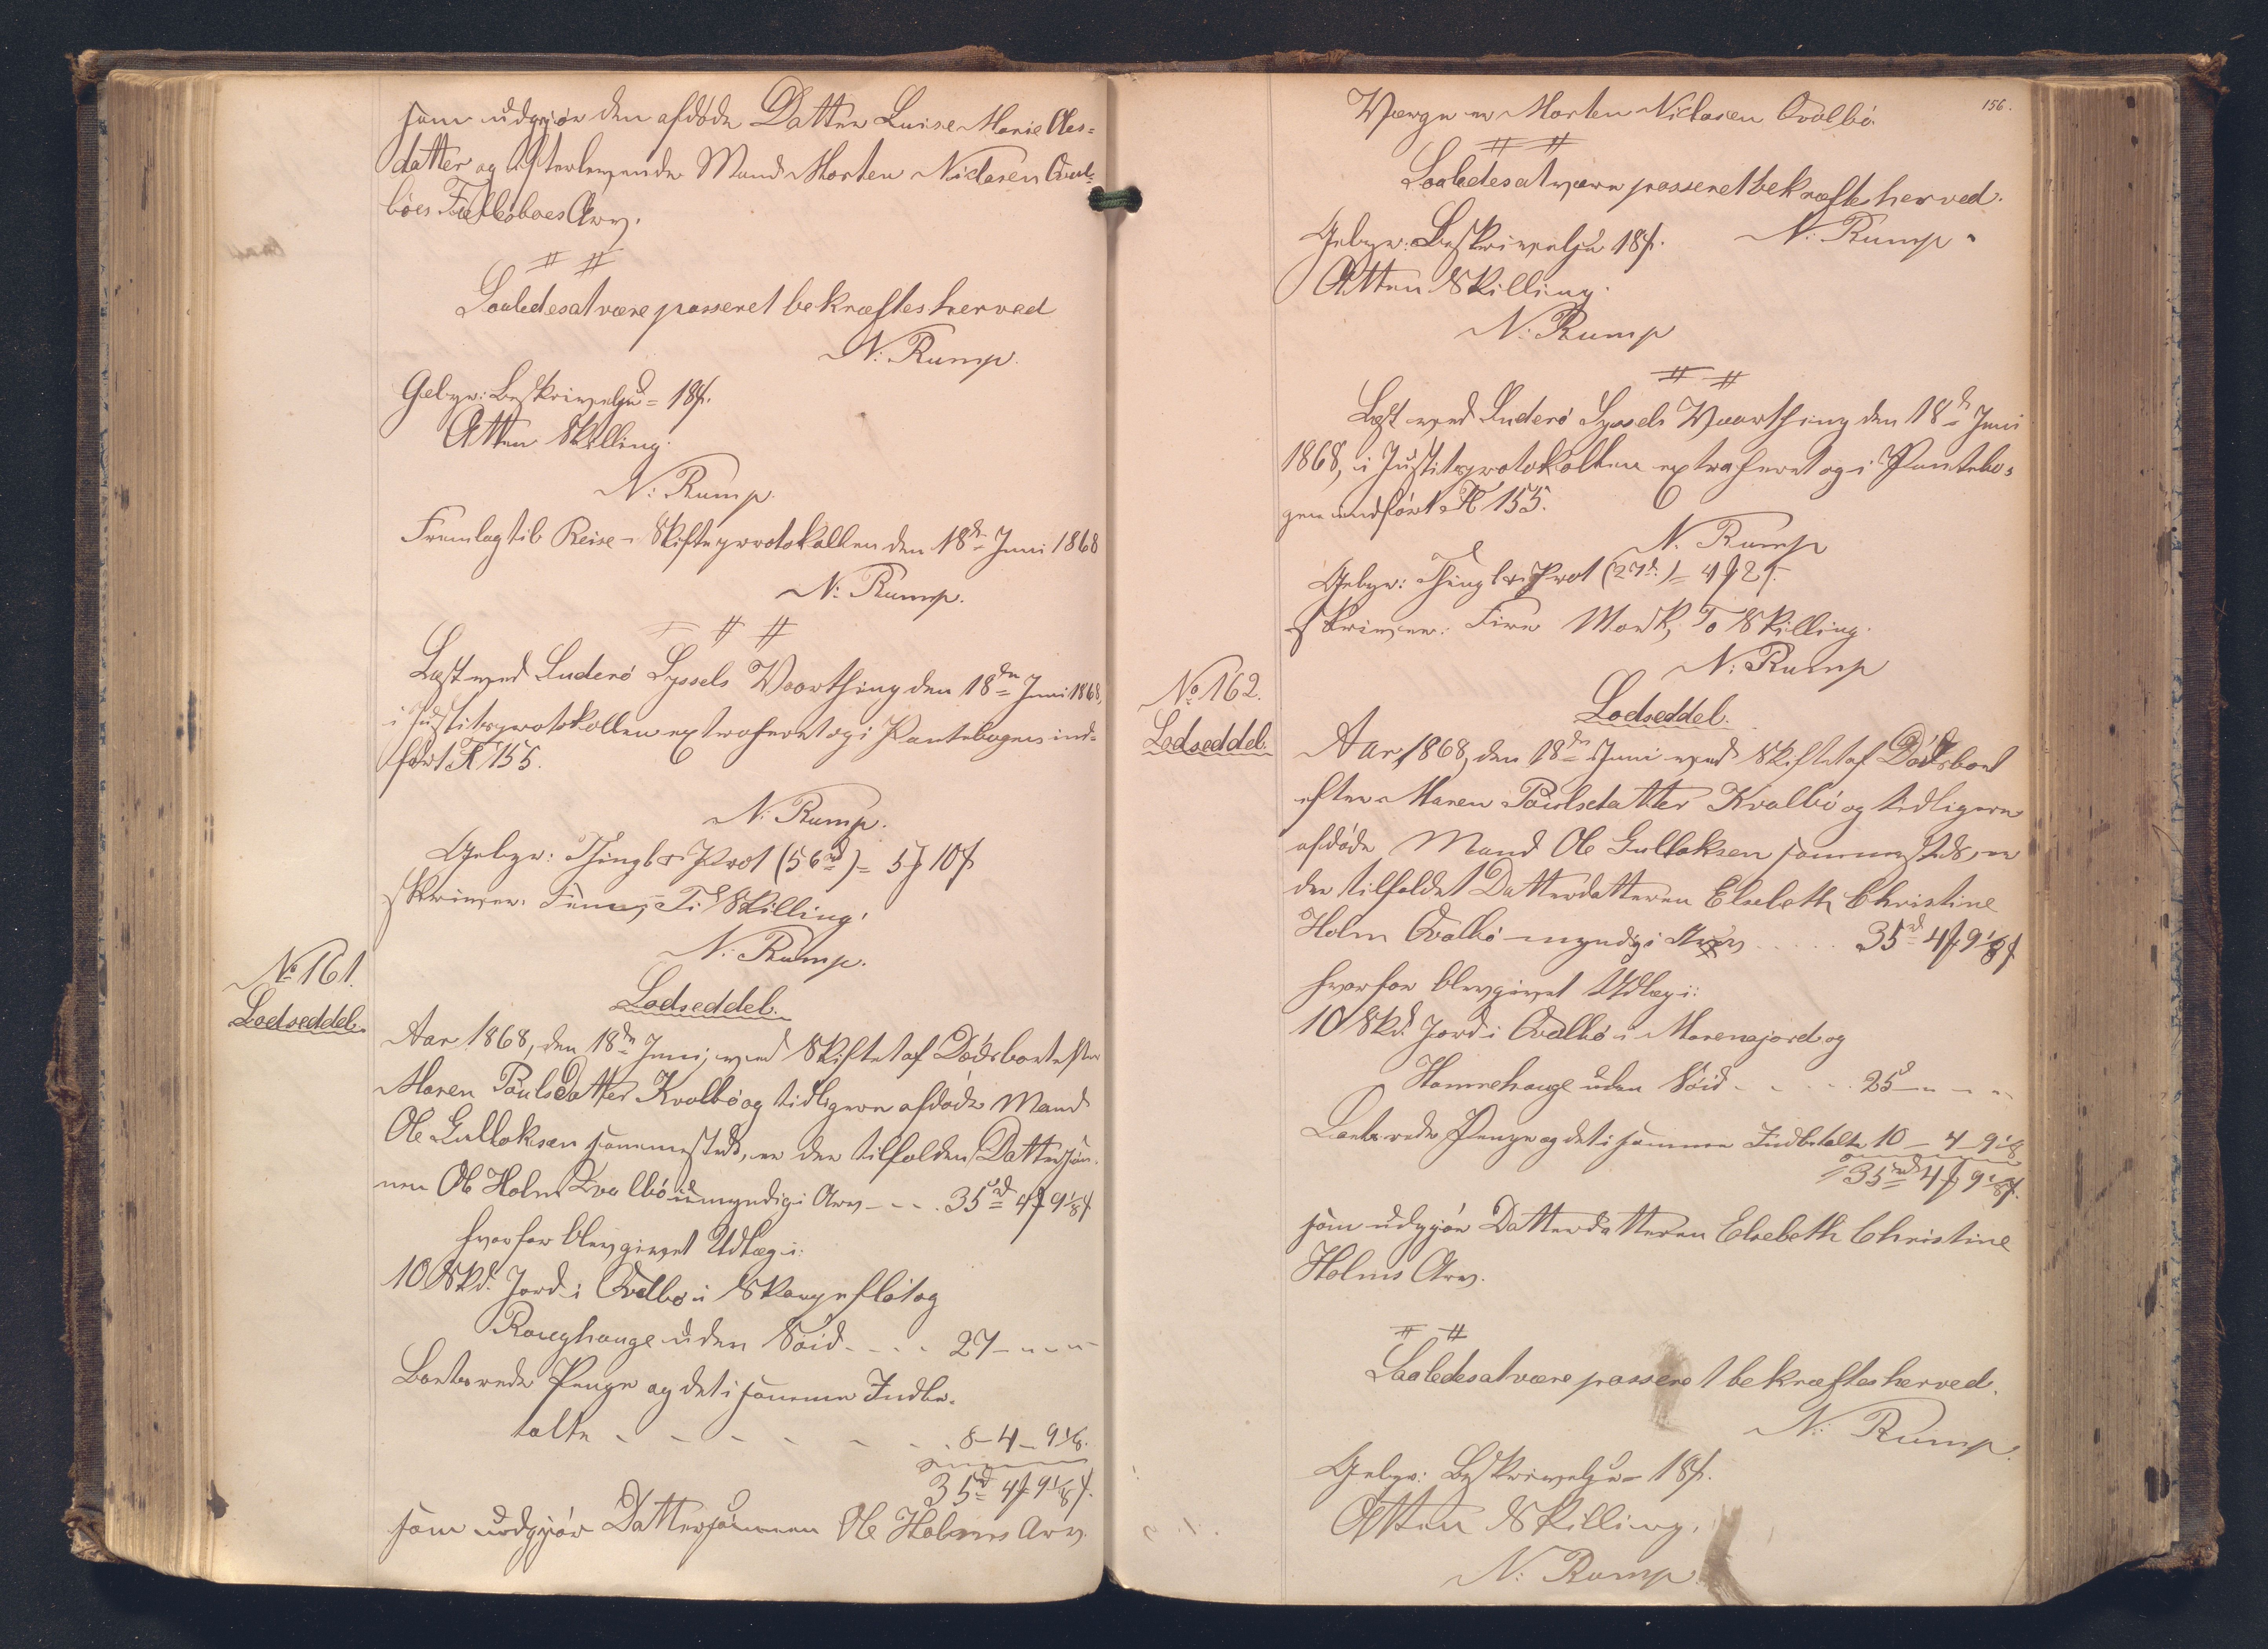 som udgjør den afdøde Datter Luise Marie Oles=
datter og Efterlevende Mand Morten Niclasen Qval=
bøes Fællesboes Arv.
Saaledes at være passeret bekræftes herved
N: Rump.
Gebyr: Beskrivelse = 18 ß.
Atten Skilling.
N: Rump.
Fremlagt til Reise-Skifteprotokollen den 18de Juni 1868
N: Rump.
Læst ved Suderø Syssels Vaarthing den 18de Juni 1868,
i Justitsprotokollen extraheret og i Pantebogen ind=
ført F. 155.
N. Rump.
Gebyr: Thingl. & Prot (56 rd) = 5 Mk 10 ß
skriver: Fem, Ti Skilling.
N. Rump.
No 161.
Lodseddel.
Lodseddel.
Aar 1868, den 18de Juni, ved Skiftet af Dødsboet efter
Maren Poulsdatter Kvalbø og tidligere afdøde Mand
Ole Gulloksen sammesteds, er der tilfalden Dattersøn-
nen Ole Holm Kvalbø umyndig i Arv - - - 35 rd 4 Mk 9 1/8 ß
hvorfor blev givet Udlæg i:
10 Skd. Jord i Qvalbø i Skougeflot og
Roughauge uden Søid - - - - 27 - " - "
Boets rede Penge og det i samme Indbe-
talte - - - - - - - 8 - 4 - 9 1/8.
35 rd 4 Mk 9 1/8 ß.
som udgjør Dattersønnen Ole Holms Arv.
156.
Værge er Morten Niclasen Qvalbø.
Saaledes at være passeret bekræftes herved.
N. Rump.
Gebyr: Beskrivelse 18 ß.
Atten Skilling.
N: Rump
Læst ved Suderø Syssels Vaarthing den 18de Juni
1868, i Justitsprotokollen extraheret og i Pantebo=
gen indført F. 155.
N. Rump
Gebyr: Thingl & Prot (27 rd) = 4 Mk 2 ß.
skriver: Fire Mark, To Skilling.
N: Rump
No 162.
Lodseddel.
Lodseddel.
Aar 1868, den 18de Juni ved Skiftet af Dødsboet
efter Maren Poulsdatter Kvalbø og tidligere
afdøde Mand Ole Gulloksen sammesteds, er
der tilfaldet Datterdatteren Elsebeth Christine
Holm Qvalbø myndig i Arv . . . . . 35 rd 4 Mk 9 1/8 ß
hvorfor blev givet Udlæg i:
10 Skd. Jord i Qvalbø i Marenajord og
Hamrehauge uden Søid - - - - 25 - " - "
Boets rede Penge og det i samme Indbetalte 10 - 4 - 9 1/8
35 rd 4 Mk 9 1/8 ß.
som udgjør Datterdatteren Elsebeth Christine
Holms Arv.
Saaledes at være passeret bekræftes herved.
N: Rump.
Gebyr: Beskrivelse = 18 ß.
Atten Skilling.
N: Rump.